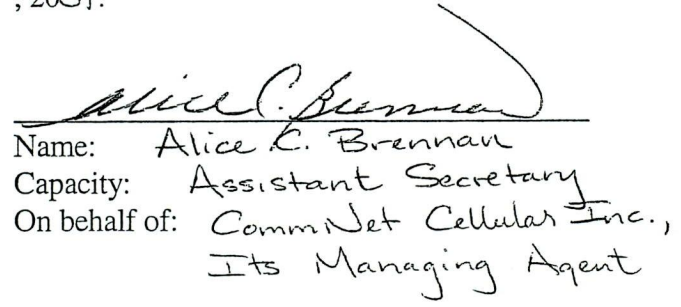 Alice C. Brennan
Name: Alice C. Brennan
Capacity: Assistant Secretary
On behalf of: CommNet Cellular Inc.,
Its Managing Agent